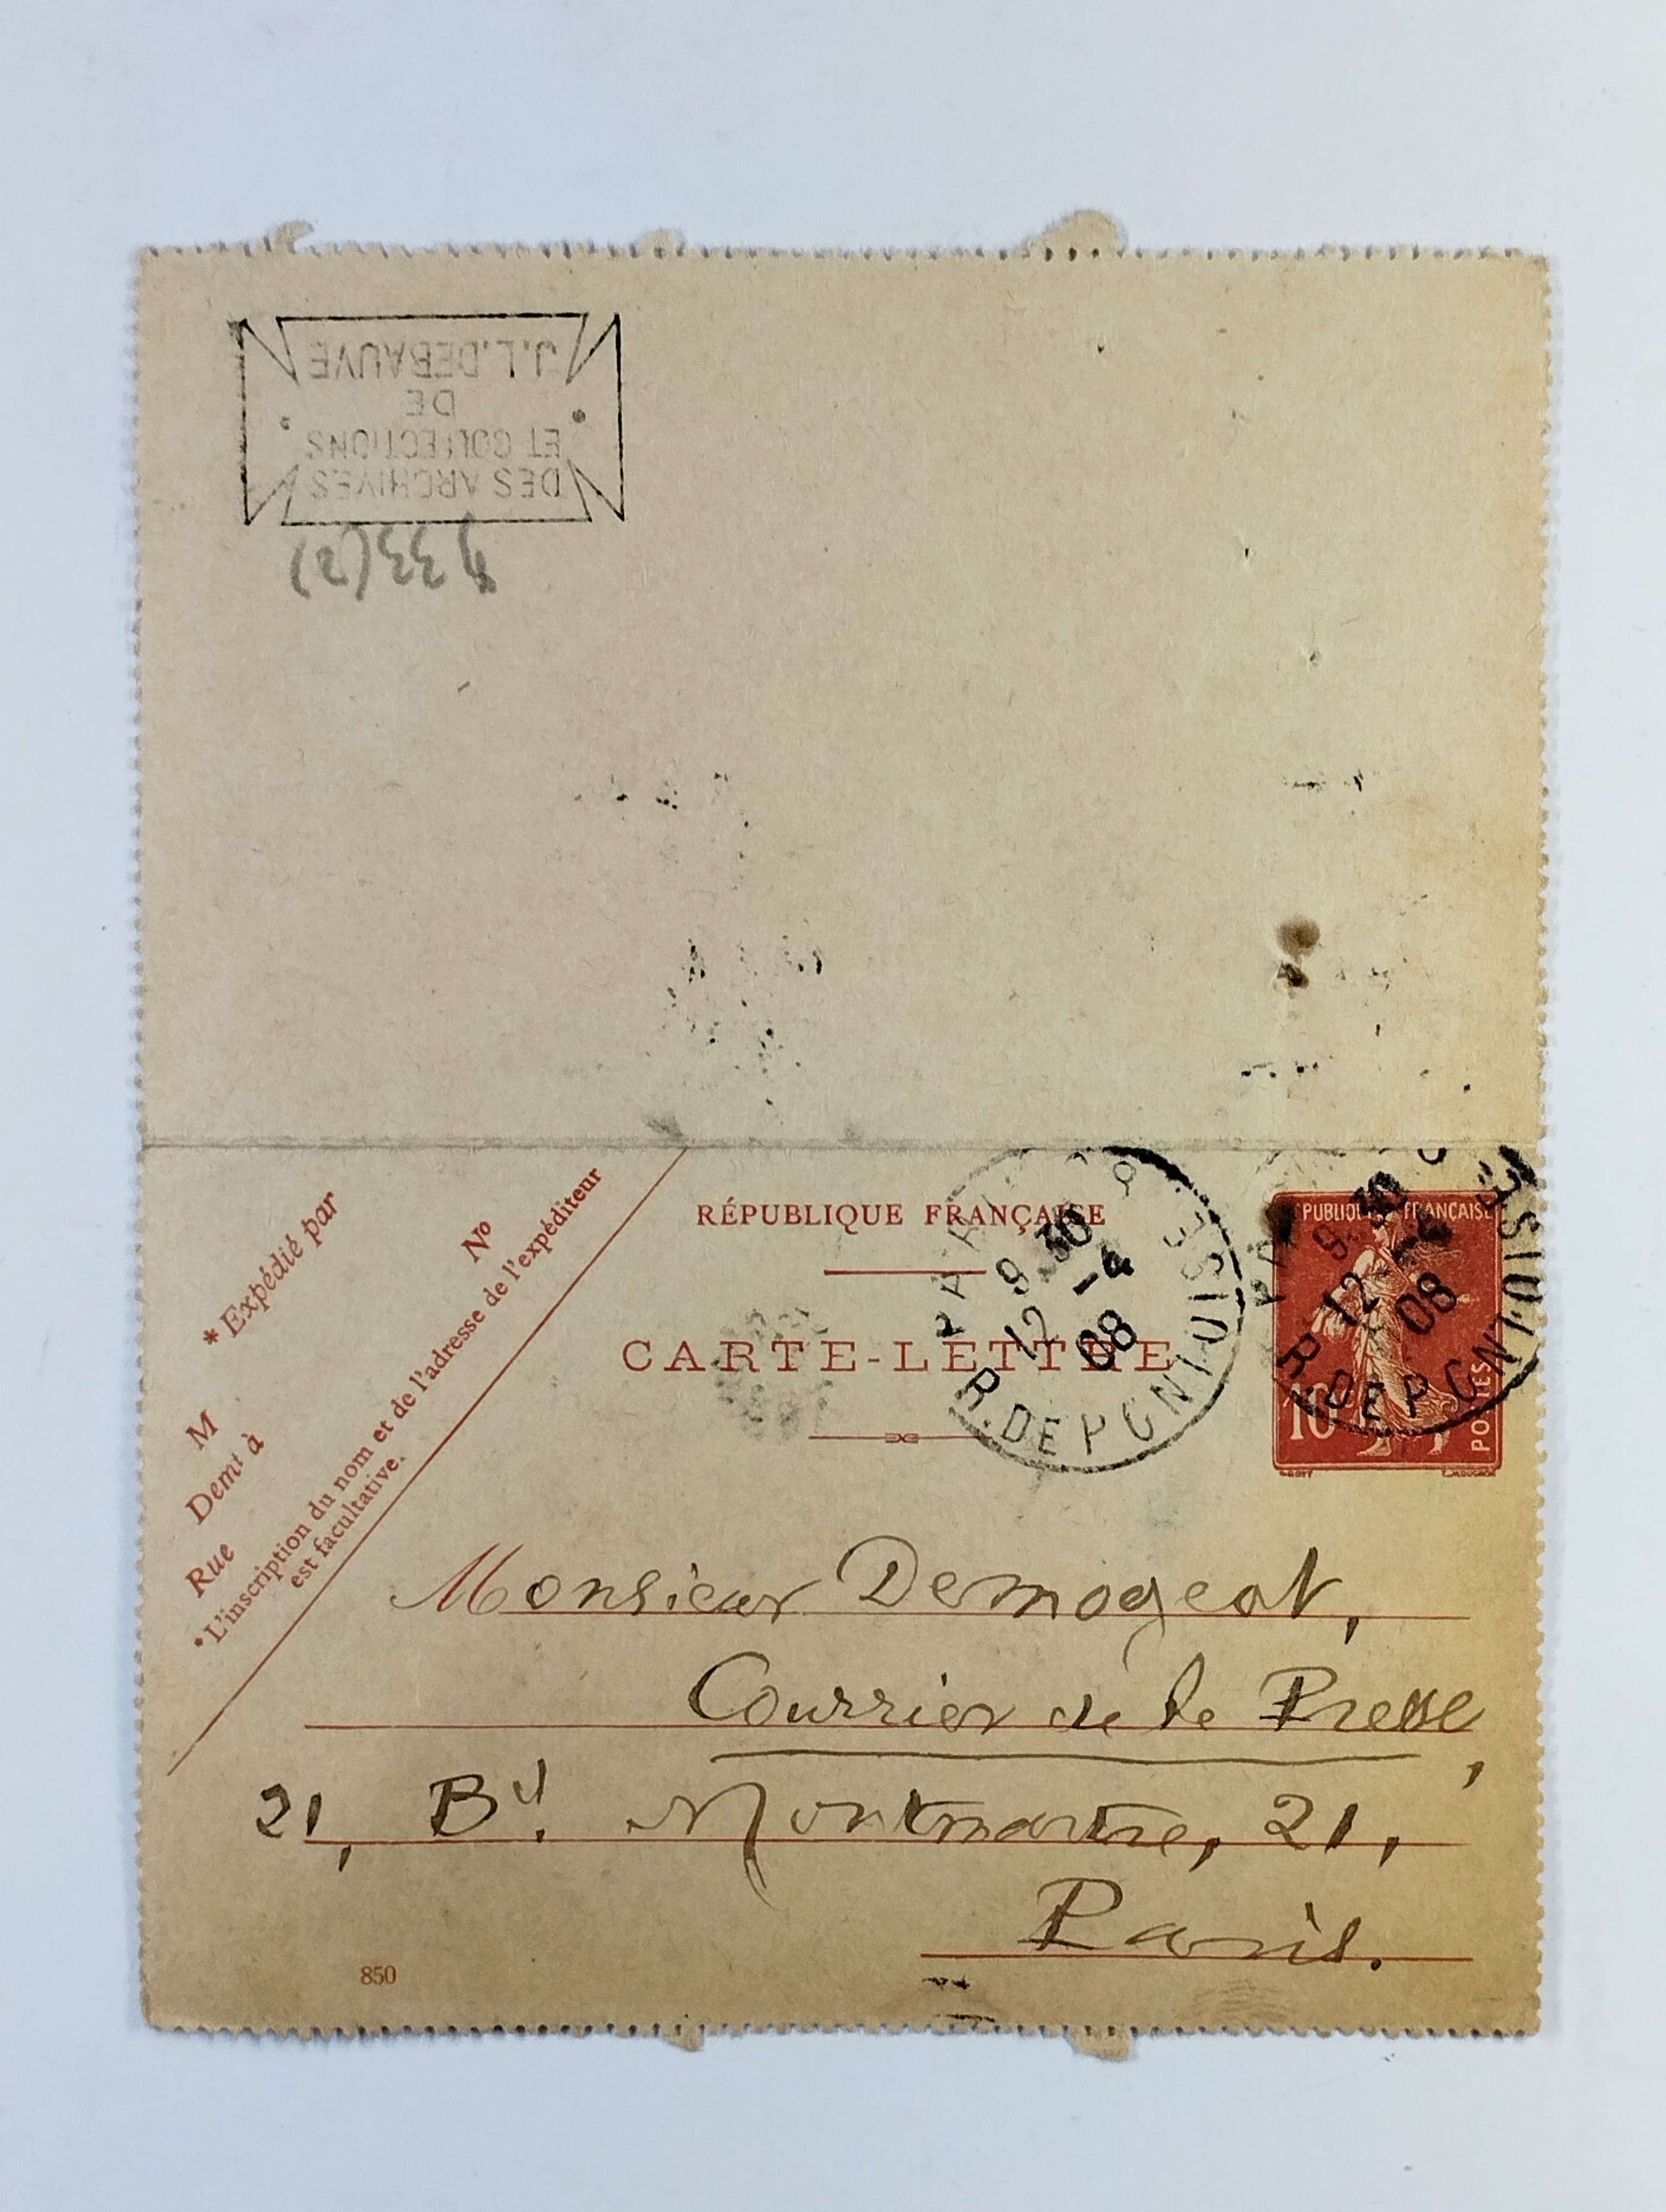 DES ARCHIVES
ET COLLECTIONS
DE
J.L. DEBAUVE
RÉPUBLIQUE FRANÇAISE
CARTE-LETTRE
* Expédié par
M
Demt à
Rue
No
*L'inscription du nom et de l'adresse de l'expéditeur
est facultative.
9 30
12 -4
08
R. DE PONTOISE
PUBLIQUE FRANÇAISE
10
POSTES
9 30
12 -4
08
R. DE PONTOISE
Monsieur Demogeot,
Courrier de la Presse,
21, Bd. Montmartre, 21,
Paris.
850